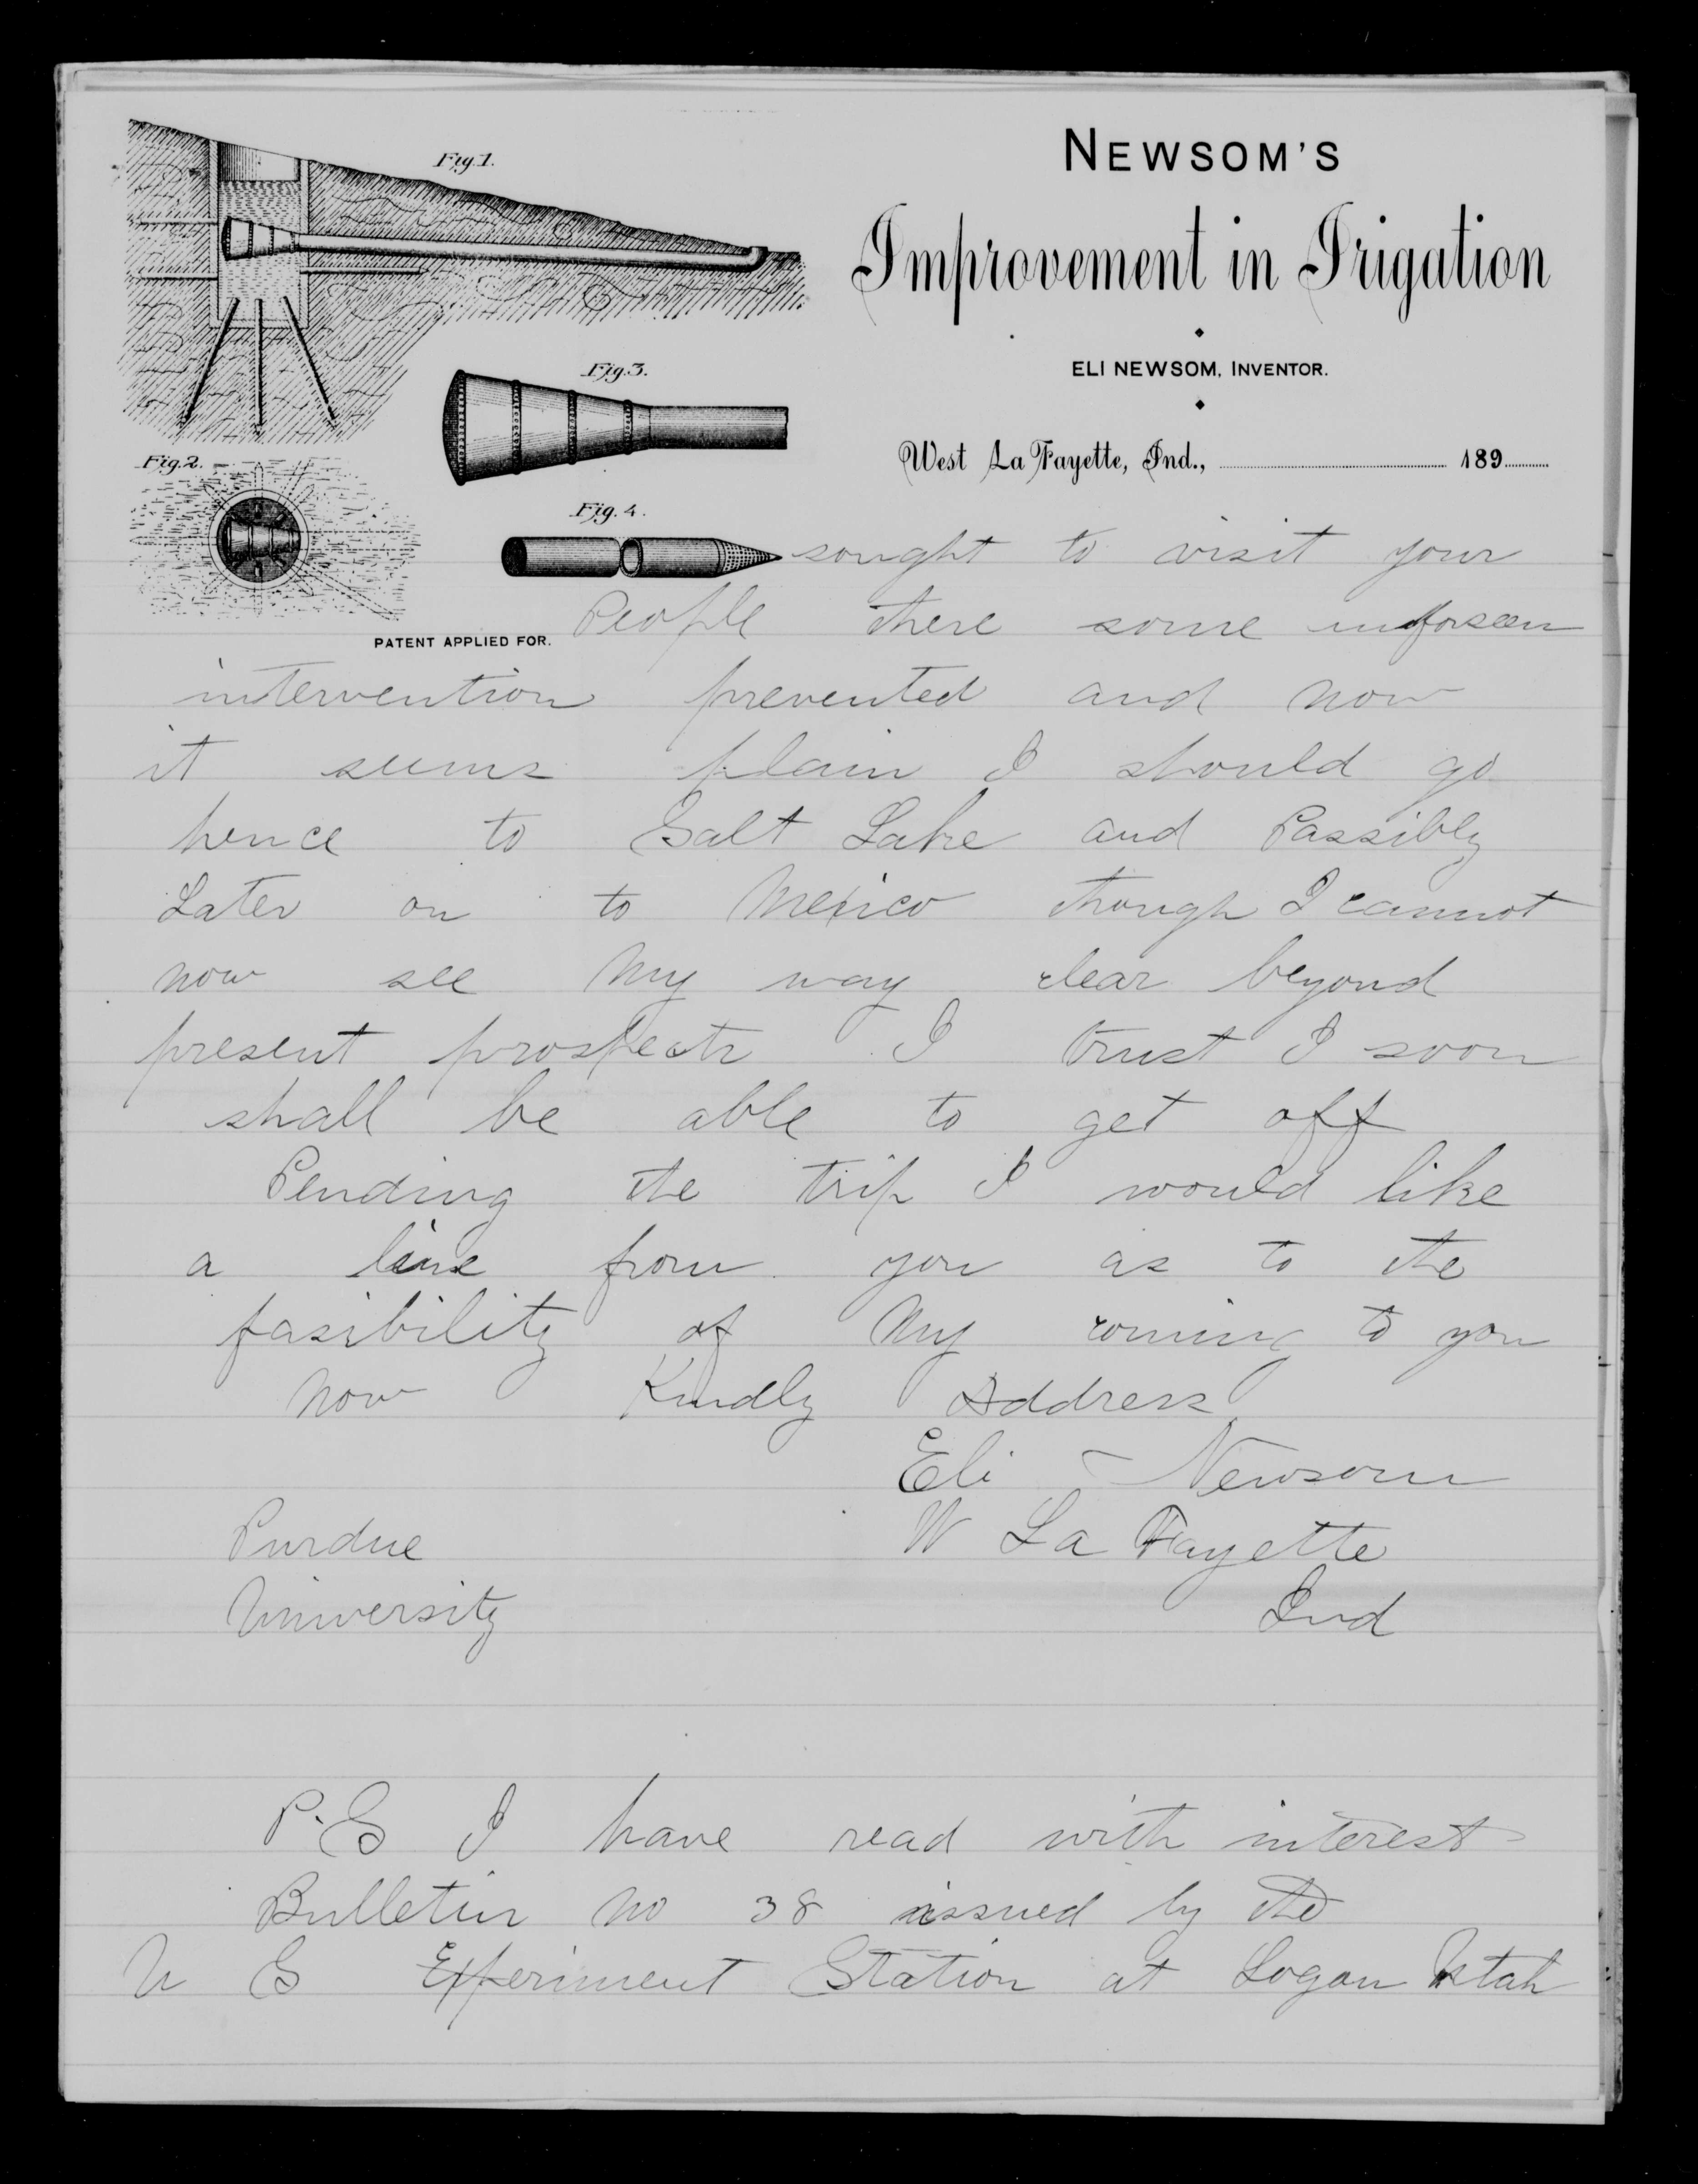 Fig.1.
NEWSOM'S
Improvement in Irigation
Fig.3.
ELI NEWSOM, INVENTOR.
Fig.2.
West La Fayette, Ind., 189
Fig. 4.
sought to visit your
PATENT APPLIED FOR.
People there some unforseen
intervention prevented and now
it seems plain I should go
hence to Salt Lake and Passibly
Later on to Mexico though I cannot
now see My way clear beyond
present prospects I trust I soon
shall be able to get off
Pending the trip I would like
a line from you as to the
fasibility of My coming to you
Now Kindly Address
Eli Newsom
Purdue W La Fayette
University Ind
P.S I have read with interest
Bulletin No 38 issued by the
U S Experiment Station at Logan Utah